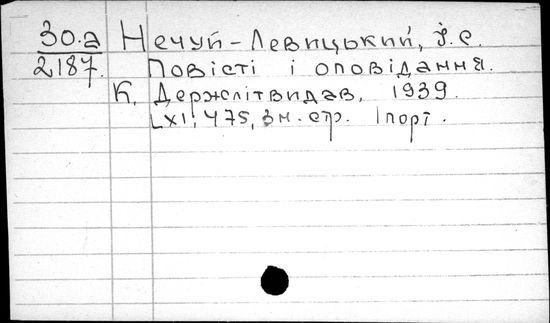 30.а Нечуй-Левицький, І.С.
2187. Повісті і оповідання.
К. Держлітвидав, 1939.
LXI, 475, 3 н. стр. 1 порт.